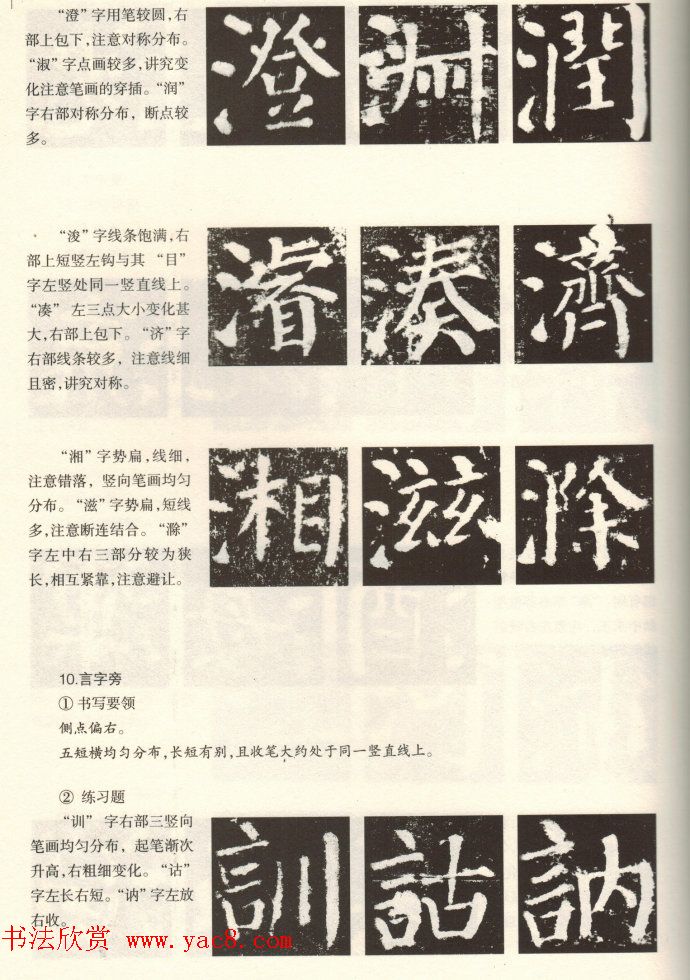 “澄”字用笔较圆,右
部上包下,注意对称分布。
“淑”字点画较多,讲究变
化注意笔画的穿插。“润”
字右部对称分布，断点较
多。
澄 淑 潤
“浚”字线条饱满,右
部上短竖左钩与其 “目”
字左竖处同一竖直线上。
“凑” 左三点大小变化甚
大,右部上包下。“济”字
右部线条较多，注意线细
且密,讲究对称。
濬 湊 濟
“湘”字势扁,线细,
注意错落，竖向笔画均匀
分布。“滋”字势扁,短线
多,注意断连结合。“滁”
字左中右三部分较为狭
长,相互紧靠,注意避让。
湘 滋 滁
10.言字旁
① 书写要领
侧点偏右。
五短横均匀分布,长短有别,且收笔大约处于同一竖直线上。
② 练习题
“训” 字右部三竖向
笔画均匀分布，起笔渐次
升高,右粗细变化。“诂”
字左长右短。“讷”字左放
右收。
訓 詁 訥
书法欣赏 www.yac8.com